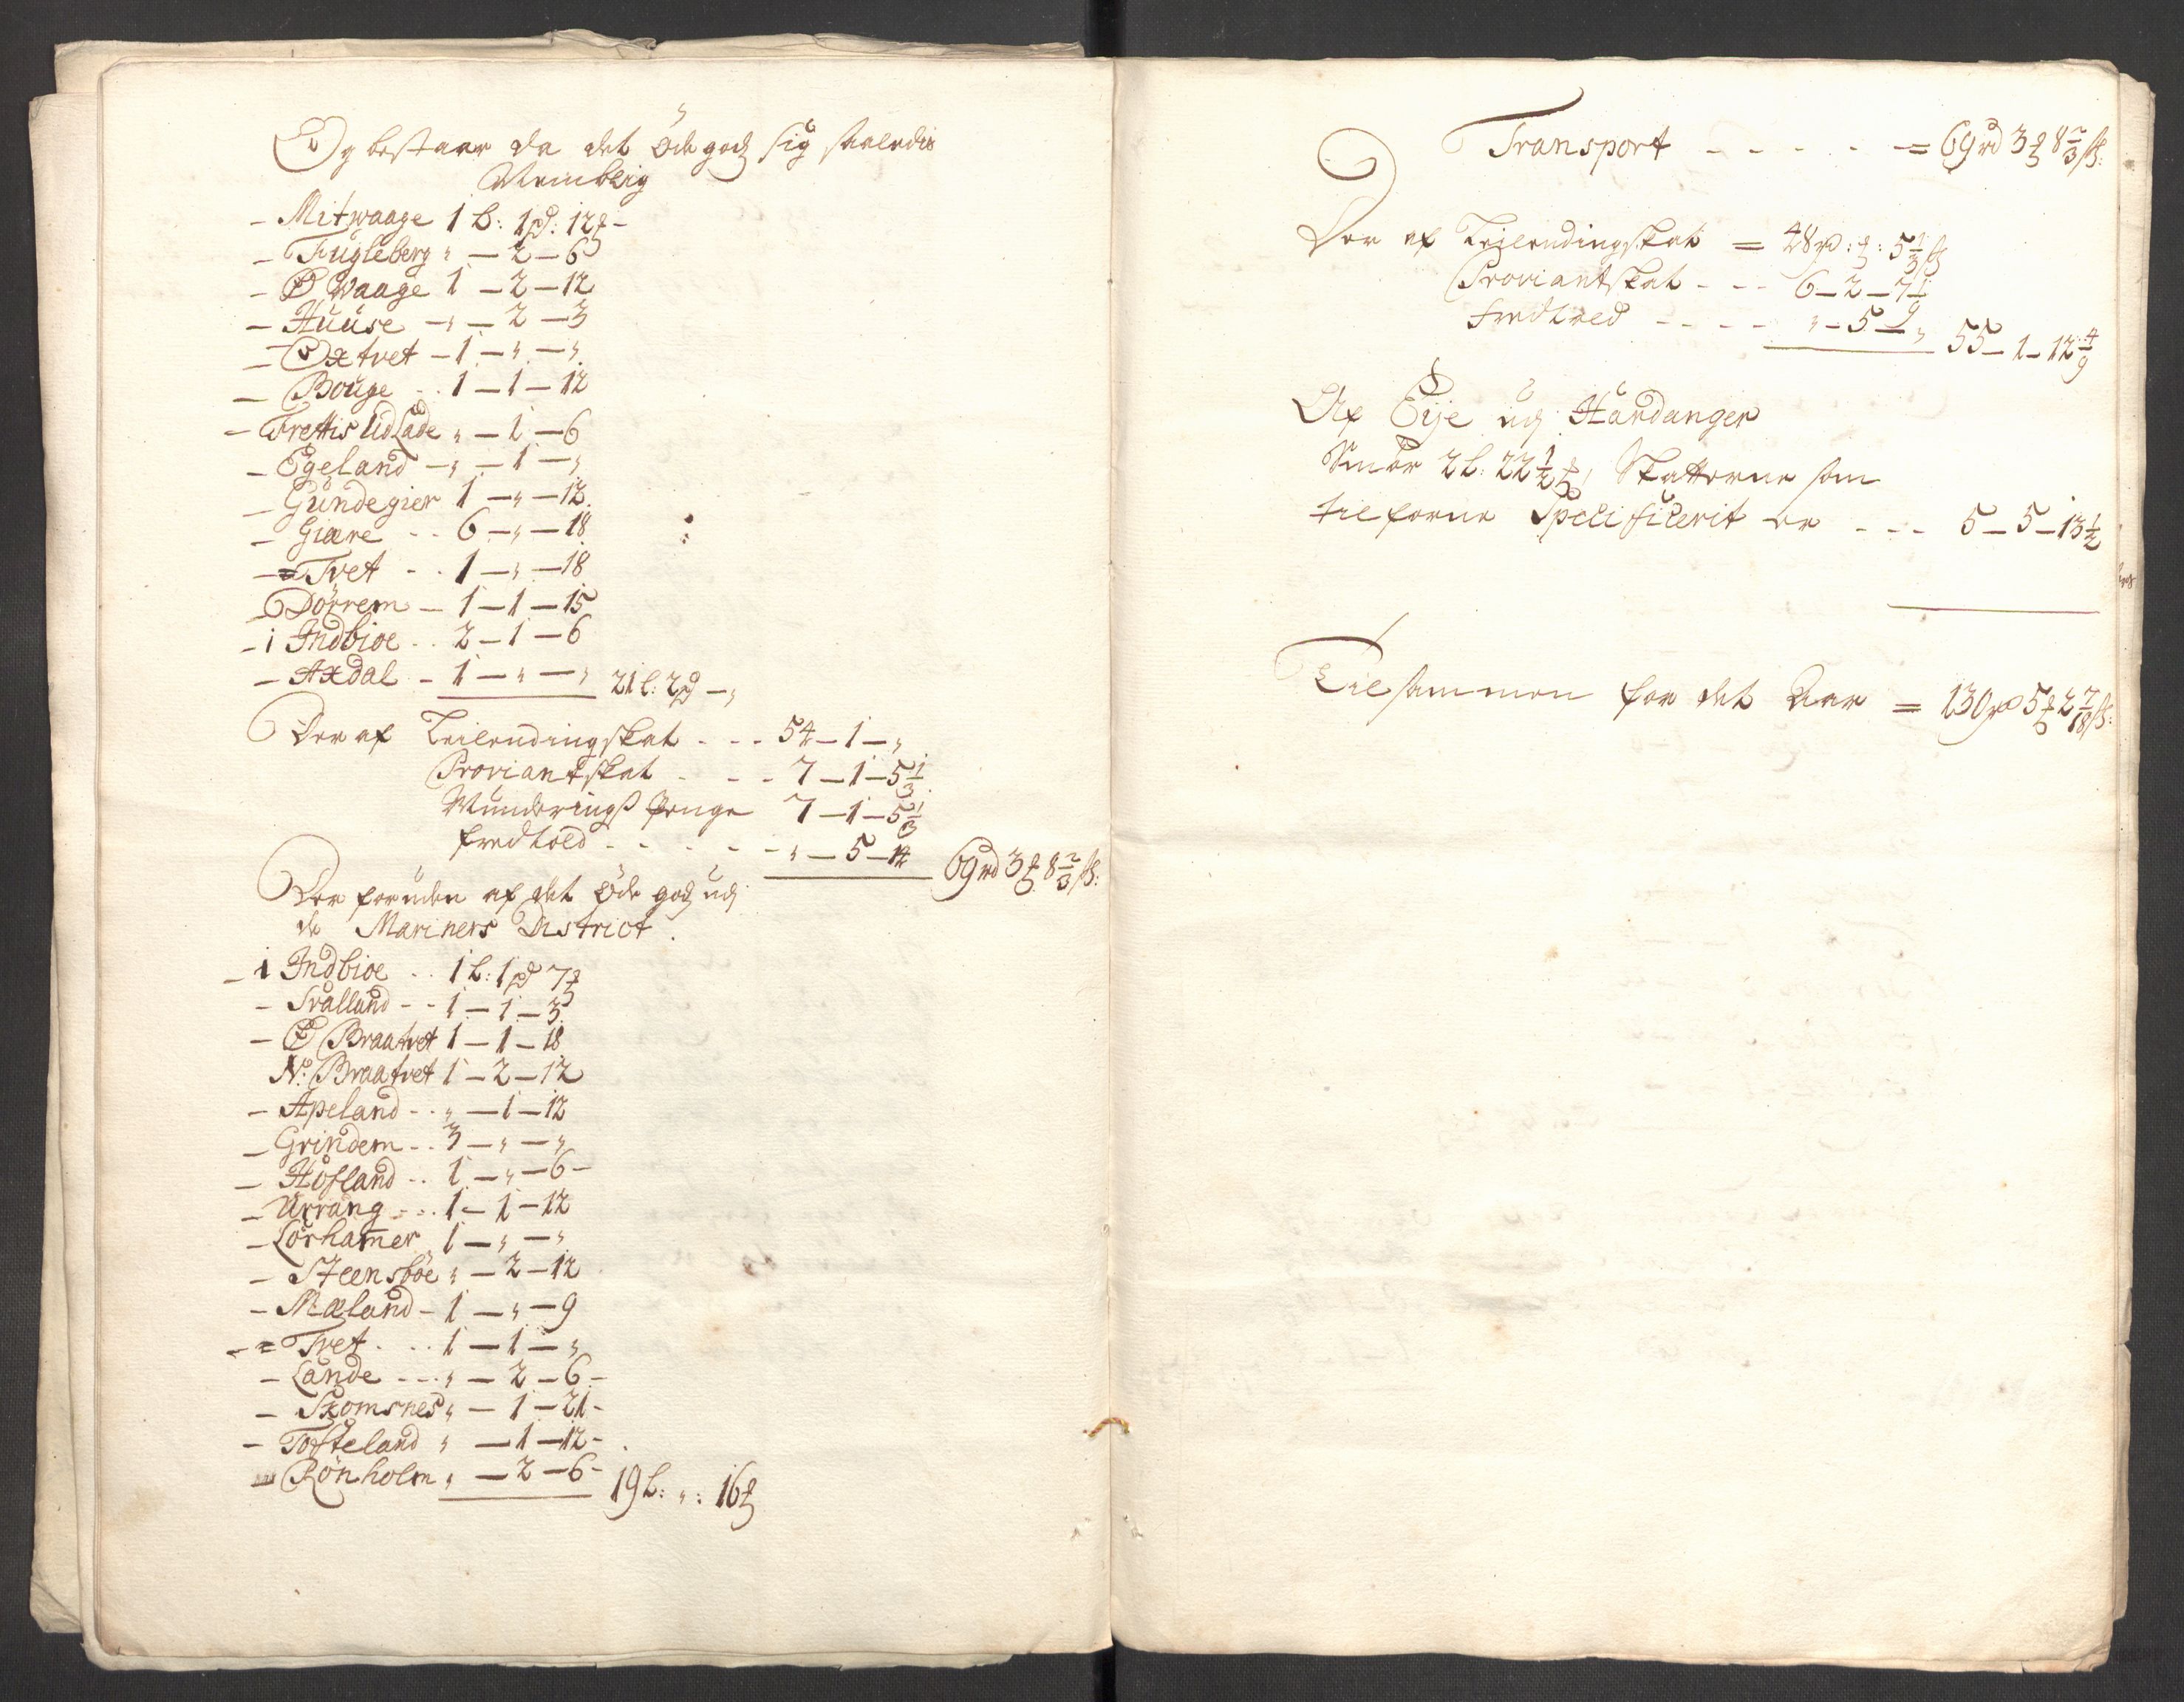 Og bestaar da det Öde godz sig saaledis
Nemblig
- Mitwaage 1 L: 1 pd: 12 ℔ -
- Fugleberg „ - 2 - 6
- Ø Waage 1 - 2 - 12
- Huuse - „ - 2 - 3
- Oxtvet - 1 - „ - „
- Bouge - - 1 - 1 - 12
- Frettis UdLade „ - 1 - 6
- Egeland - „ - 1 - „
- Gundegier 1 - „ - 12
- Giære - - 6 - „ - 18
- = Tvet - - 1 - „ - 18
- Dörrem - 1 - 1 - 15
- i Indbioe - - 2 - 1 - 6
- Axdal - 1 - „ - „ 21 l: 2 pd - „
Der af Leilendingskat - - - 54 - 1 - „
Proviantskat - - - 7 - 1 - 5 1/3
Munderingß Penge 7 - 1 - 5 1/3
fredtold - - - - - „ - 5 - 14 69 rd 3 ℔ 8 2/3 ß:
Der foruden af det Öde godz udj
de Mariners District
- i Indbioe - - 1 L: 1 pd 7 ℔
- Svalland - - 1 - 1 - 3
- Ø Braatvet 1 - 1 - 18
N: Braatvet 1 - 2 - 12
- Apeland - - „ - 1 - 12
- Grindem - - 3 - „ - „
- Hofland - - 1 - „ - 6 -
- Urrang - - - 1 - 1 - 12
- Lörhamer 1 - „ - „
- Steensböe „ - 2 - 12
- Mæland - 1 - „ - 9
- = Tvet - - - 1 - 1 - „
- Lande - - - „ - 2 - 6 -
- Skomsnes „ - 1 - 21 -
- Tofteland „ - 1 - 12 -
- Rönholm „ - 2 - 6 - 19 L: „: 16 ℔
Transport - - - - - = 69 rd 3 ℔ 8 2/3 ß:
Der af Leilendingskat = 48 rd: ℔: 5 1/3 ß
Proviantskat - - - 6 - 2 - 7 1/9
fredtold - - - - „ - 5 - „ 55 - 1 - 12 4/9
Af Eije udj Hardanger
Smör 2 l: 22 1/2 ℔, Skatterne som
tilforne Specificerit er - - - 5 - 5 - 13 1/2
Tilsammen for det Aar = 130 rd 5 ℔ 2 7/18 ß: